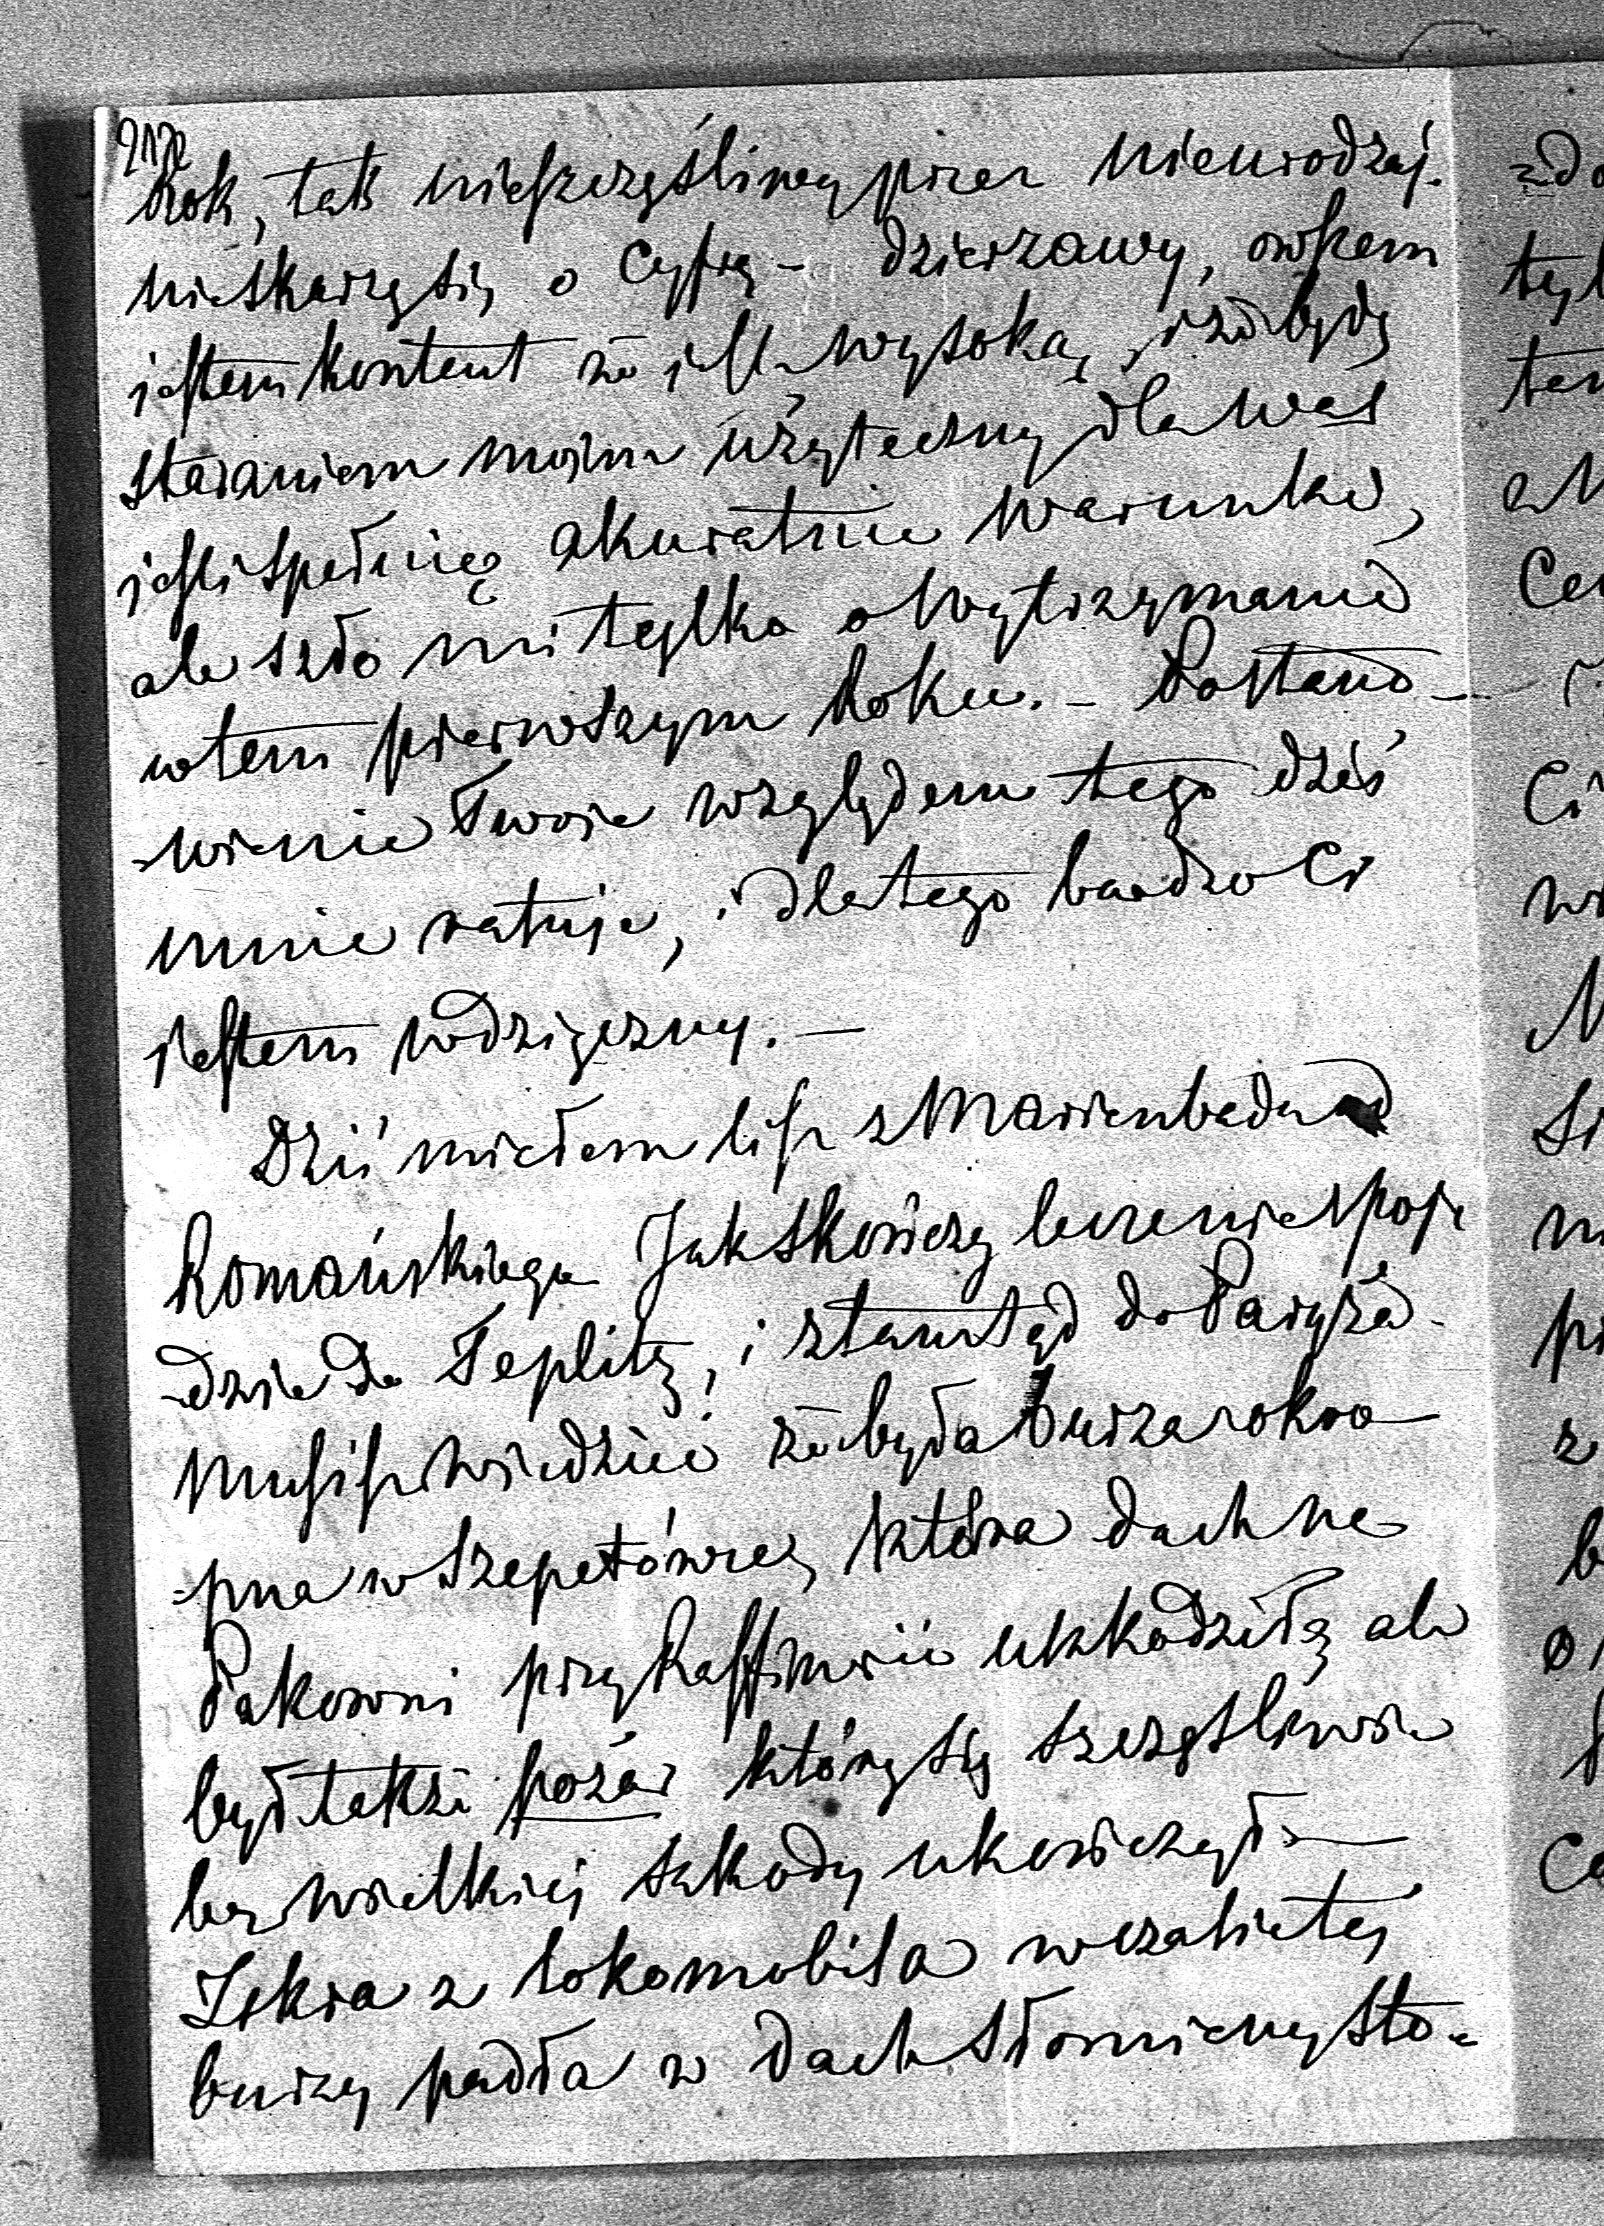 2172
Rok, tak nieszczęśliwy przez nieurodzaj.
nieskarzę się o Cyfrę – dzierzawy, owszem
jestem kontent że jest wysoką, i że będę
staraniem mojem użyteczny dla Was
jeśli spełnię akuratnie warunki,
ale szło mi tylko o wytrzymanie
w tem pierwszym Roku. – Postano-
-wienie Twoje względem tego dziś
mnie ratuje, i dlatego bardzo Ci
jestem wdzięczny. –
Dziś miałem list z Marienbadu od
Romańskiego Jak skończy leczenie poje
-dzie do Teplitz, i ztamtąd do Paryża.
Musisz wiedzieć że była burza okro-
-pna w Szepetówce, która dach na
Pakowni przy Raffinerii uszkodziła, ale
był także pożar który się szczęśliwie
bez wielkiej szkody ukończył. –
Iskra z lokomobila w czasie tej
burzy padła w dach słomiany sto-
zdo
tyl